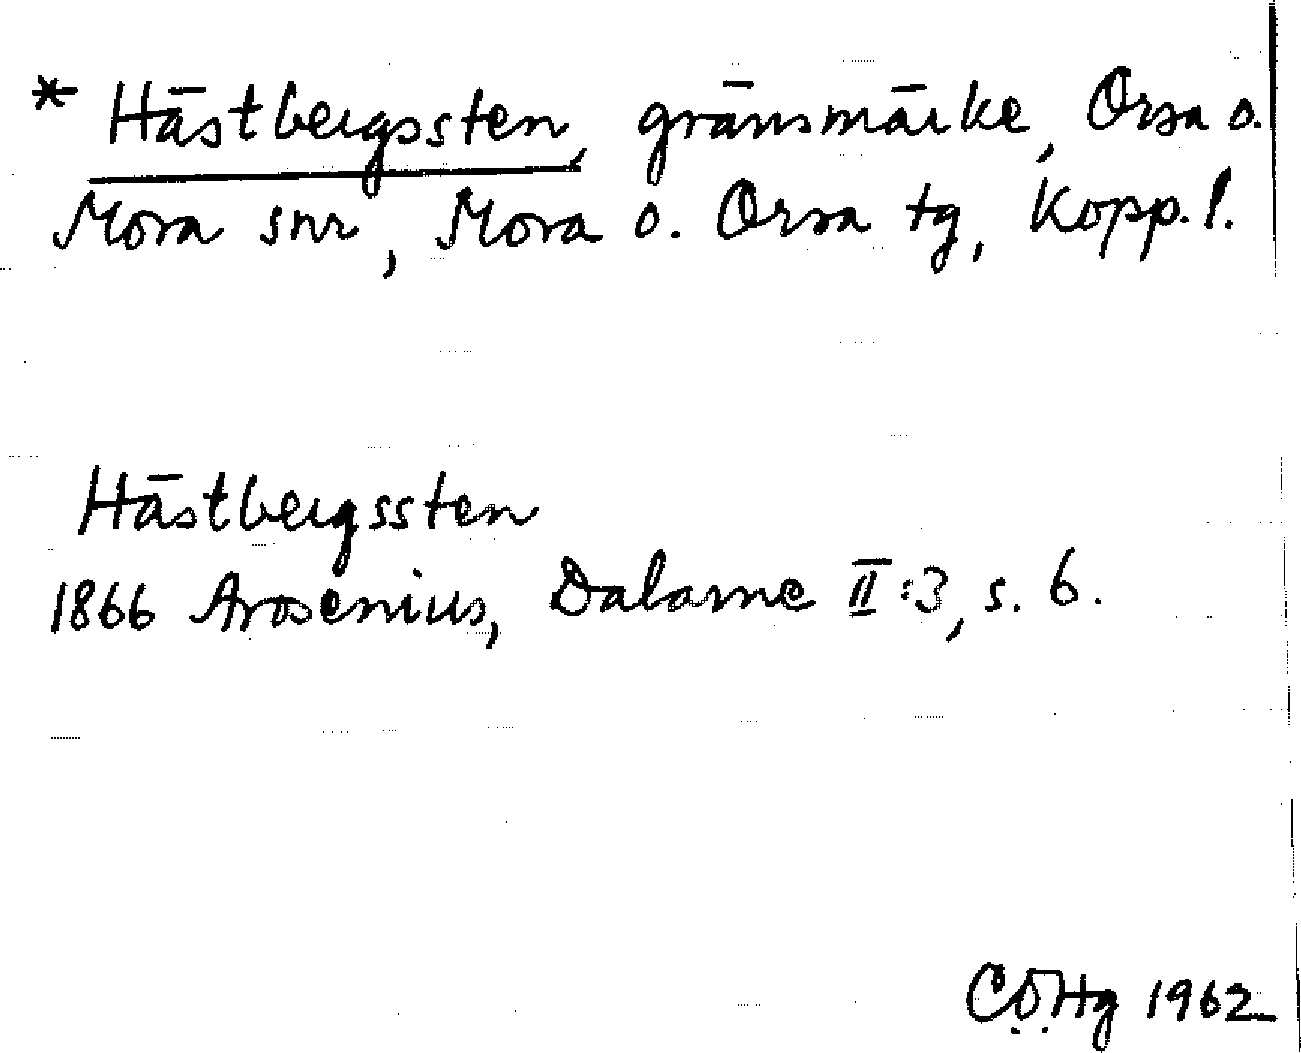 * Hästbergssten, gränsmärke, Orsa o.
Mora snr, Mora o. Orsa tg, Kopp. l.
Hästbergssten
1866 Arosenius, Dalarne II:3, s. 6.
CÖHg 1962